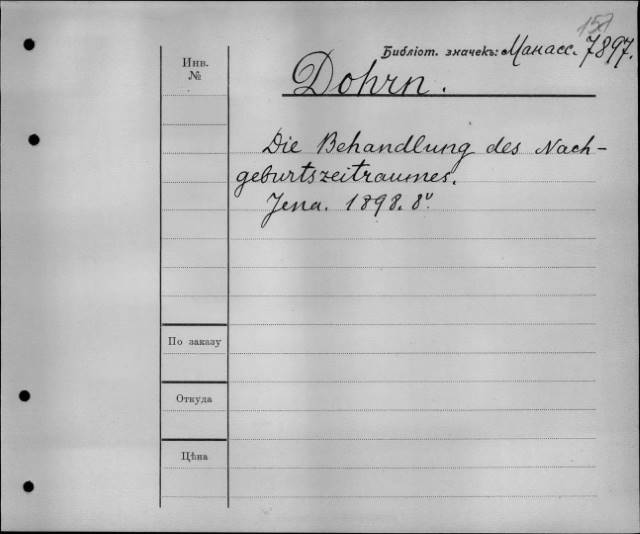 Библіот. значекъ: Манасс. 7897.
Инв.
№
Dohrn.
Die Behandlung des Nach-
geburtszeitraumes.
Jena. 1898. 8º
По заказу
Откуда
Цѣна